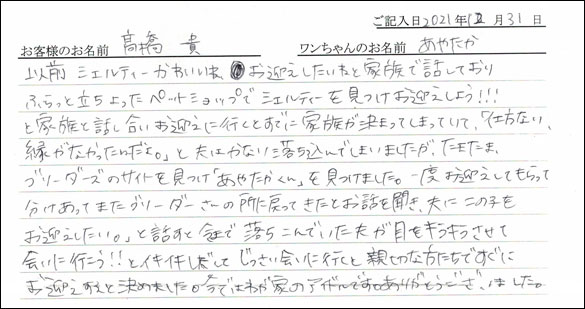 ご記入日2021年12月31日
お客様のお名前 高橋 貴 ワンちゃんのお名前 あやたか
以前 シェルティーかわいいね お迎えしたいねと家族で話しており
ふらっと立ちよったペットショップでシェルティーを見つけお迎えしよう!!!
と家族と話し合いお迎えに行くとすでに家族が決まってしまっていて、「仕方ない、
縁がなかったんだよ。」と夫はかなり落ち込んでしまいましたが、たまたま
ブリーダーズのサイトを見つけ「あやたかくん」を見つけました。一度お迎えしてもらって
分けあってまたブリーダーさんの所に戻ってきたとお話を聞き、夫に「この子を
お迎えしたい。」と話すと今まで落ちこんでいた夫が目をキラキラさせて
会いに行こう!!とイキイキしだしてじっさい会いに行くと親切な方たちですぐに
お迎えすると決めました。今ではわが家のアイドルです。ありがとうございました。